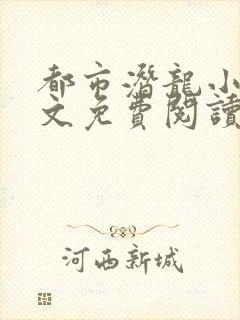 都市潛龍小
文免費閱讀
河西新城